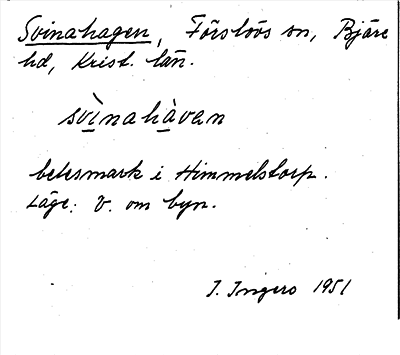 Svinahagen, Förslövs sn, Bjäre
hd, Krist. län.
svìnahàvan
betesmark i Himmelstorp.
Läge: V. om byn.
I. Ingers 1951